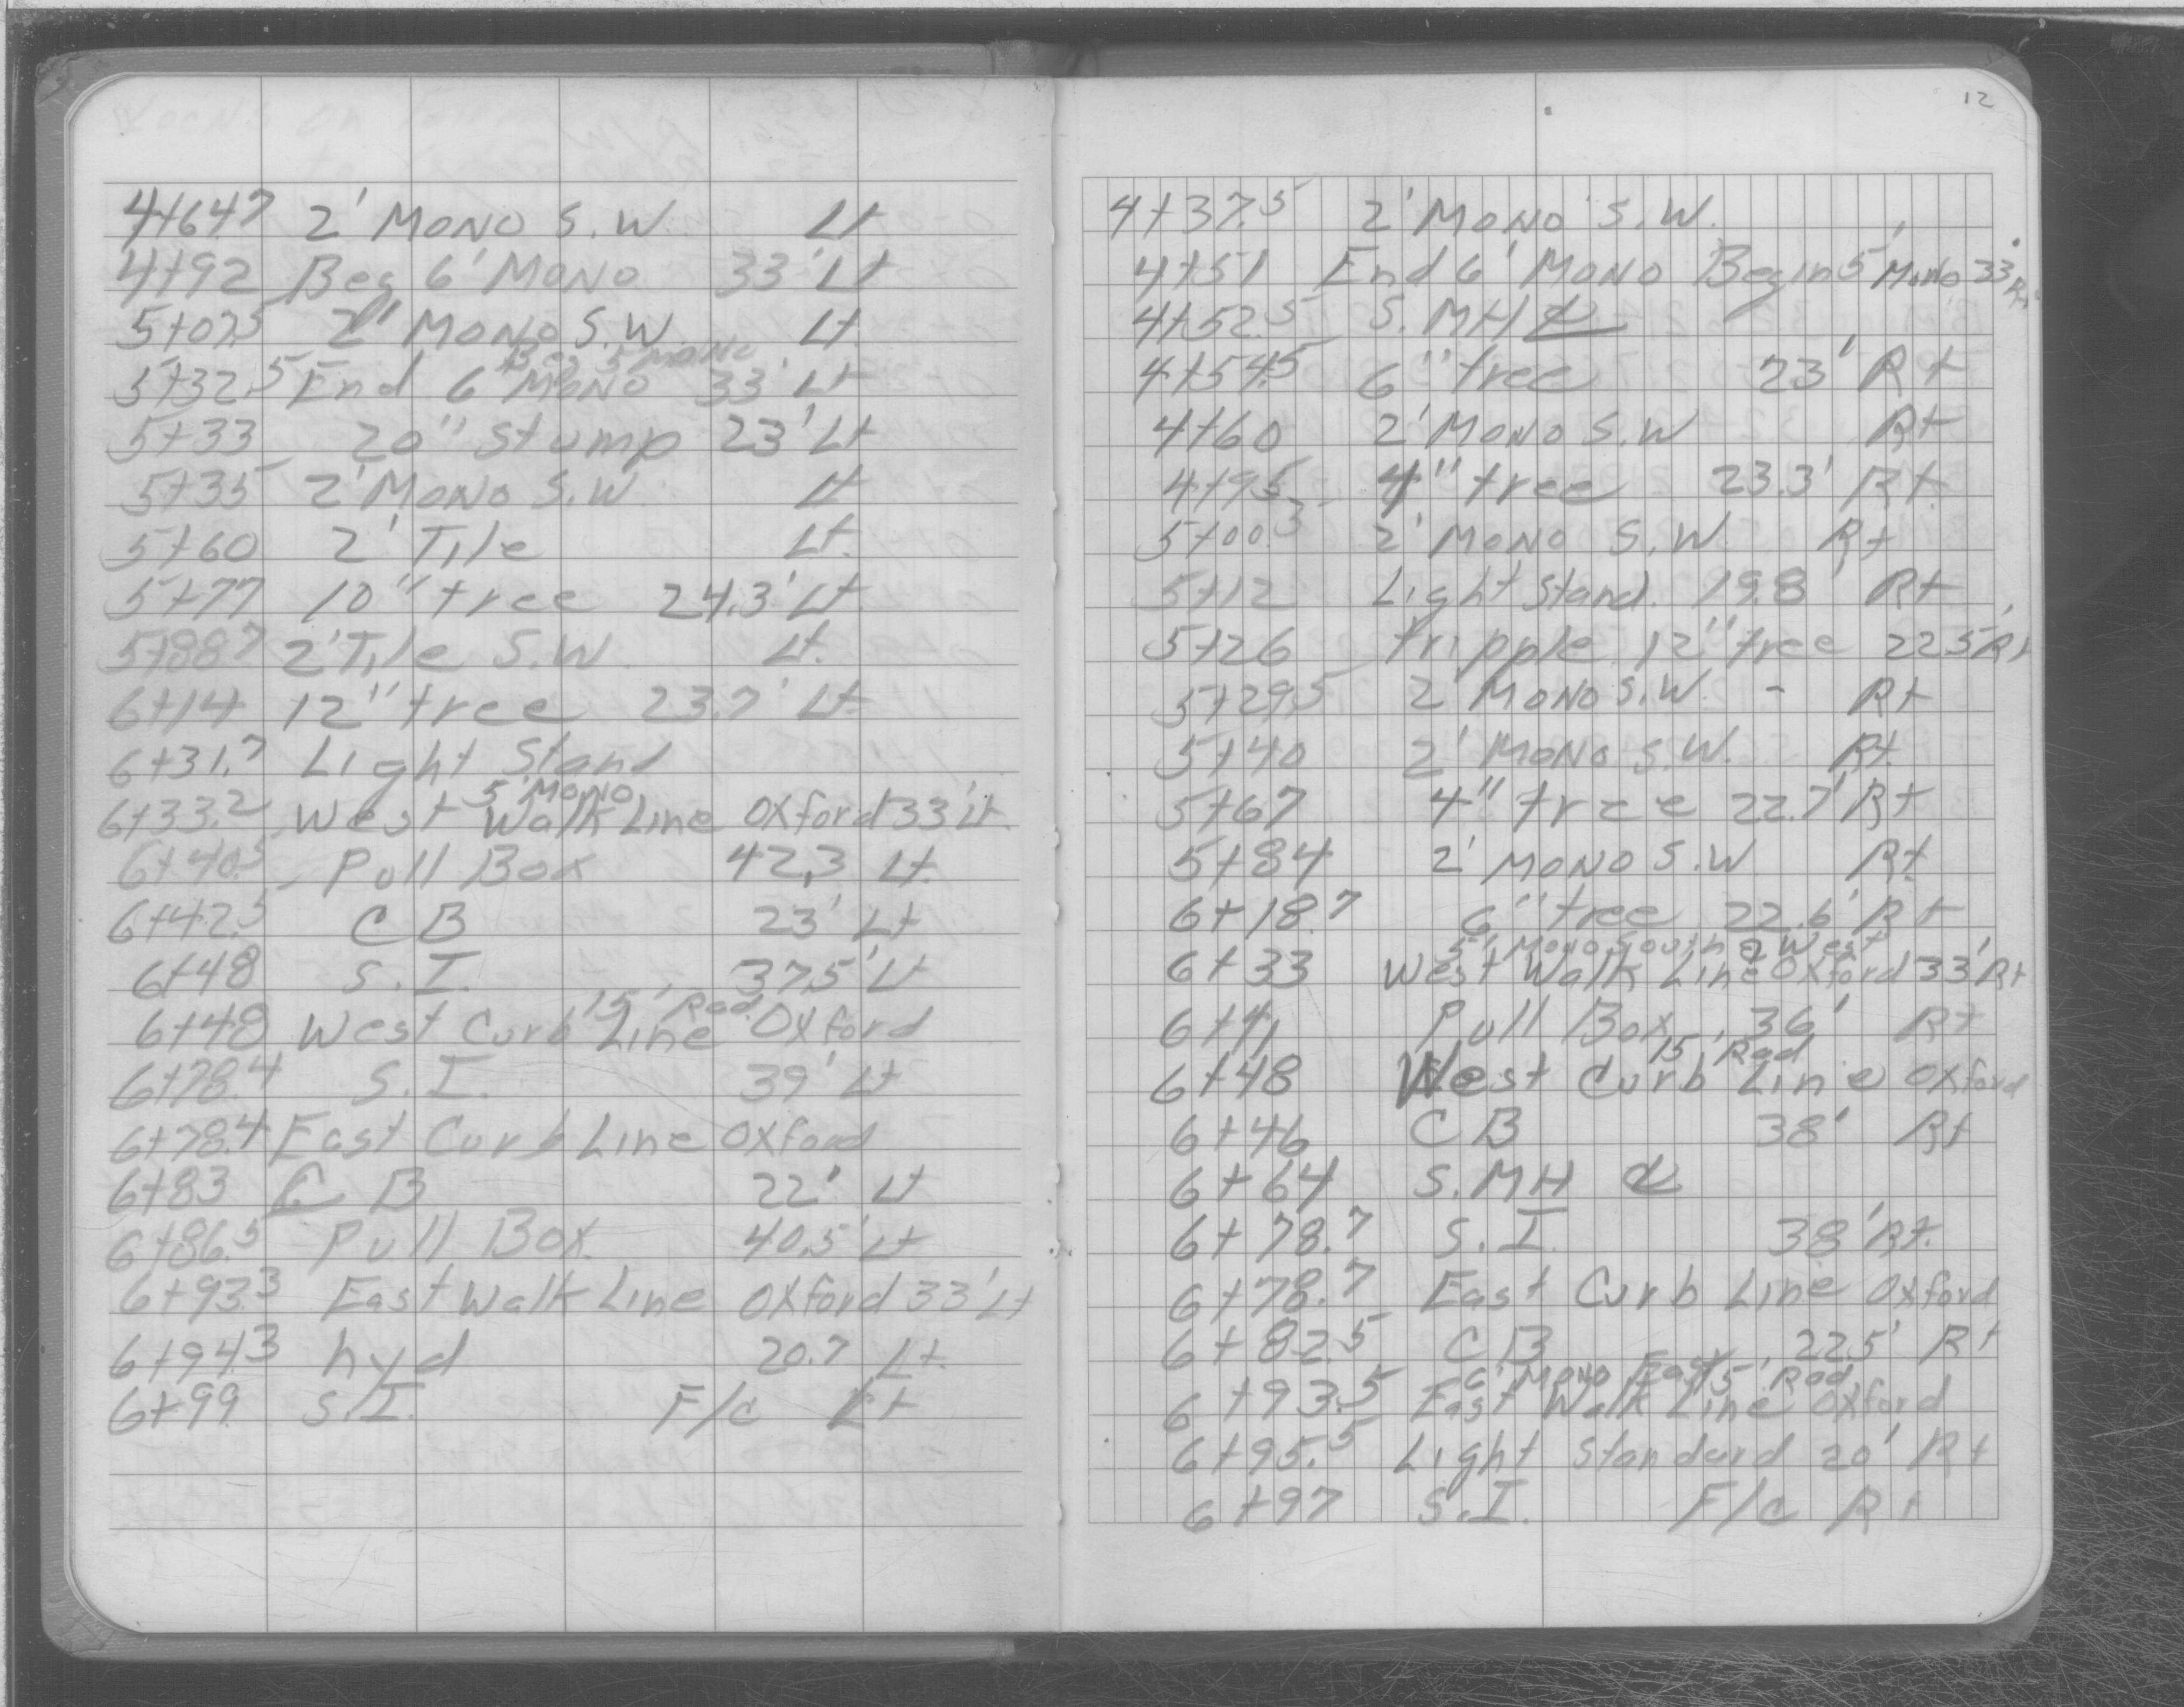 4+64.7 2' MONO S.W. Lt
4+92 Beg 6' MONO 33' Lt
5+07.5 2' MONO S.W. Lt.
Beg 5' MONO
5+32.5 End 6' MONO 33' Lt
5+33 20" Stump 23' Lt
5+35 2' MONO S.W. Lt
5+60 2' Tile Lt.
5+77 10" tree 24.3' Lt.
5+88.7 2' Tile S.W. Lt.
6+14 12" tree 23.7' Lt.
6+31.7 Light Stand
5' MONO
6+33.2 West Walk Line Oxford 33' Lt.
6+40.5 Pull Box 42.3 Lt.
6+42.5 CB 23' Lt
6+48 S.I. 37.5' Lt
15' Rad.
6+48 West Curb Line Oxford
6+78.4 S.I. 39' Lt
6+78.4 East Curb Line Oxford
6+83 CB 22' Lt
6+86.5 Pull Box 40.5' Lt
6+93.3 East Walk Line Oxford 33' Lt
6+94.3 hyd 20.7 Lt.
6+99 S.I. F/c Lt
12
4+37.5 2' MONO S.W.
4+51 End 6' MONO Begin 5' Mono 33' Rt
4+52.5 S.MH ℄
4+54.5 6" tree 23' Rt
4+60 2' MONO S.W Rt
4+95 4" tree 23.3' Rt.
5+00.3 2' MONO S.W. Rt
5+12 Light Stand. 19.8' Rt
5+26 tripple 12" tree 22.5' Rt
5+29.5 2' MONO S.W. - Rt
5+40 2' MONO S.W. Rt.
5+67 4" tree 22.7' Rt
5+84 2' MONO S.W Rt.
6+18.7 6" tree 22.6' Rt
5' Mono South & West
6+33 West Walk Line Oxford 33' Rt
6+41 Pull Box 36' Rt
15' Rad
6+48 West Curb Line Oxford
6+46 CB 38' Rt
6+64 S.MH ℄
6+78.7 S.I. 38' Rt.
6+78.7 East Curb Line Oxford
6+82.5 CB 22.5' Rt
6' Mono East 15' Rad
6+93.5 East Walk Line Oxford
6+95.5 Light Standard 20' Rt
6+97 S.I. F/c Rt